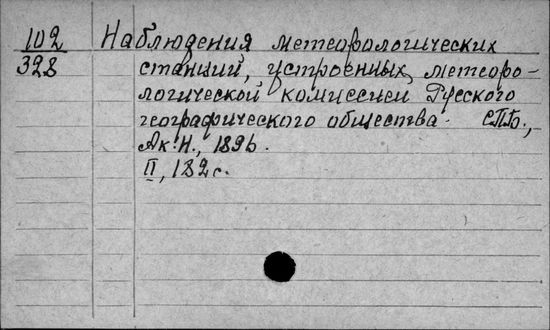 102 Наблюдения метеорологических
328 станций, устроенных метеоро-
логической комиссией Русского
географического общества. СПб.,
Ак.Н., 1896.
II, 182 с.